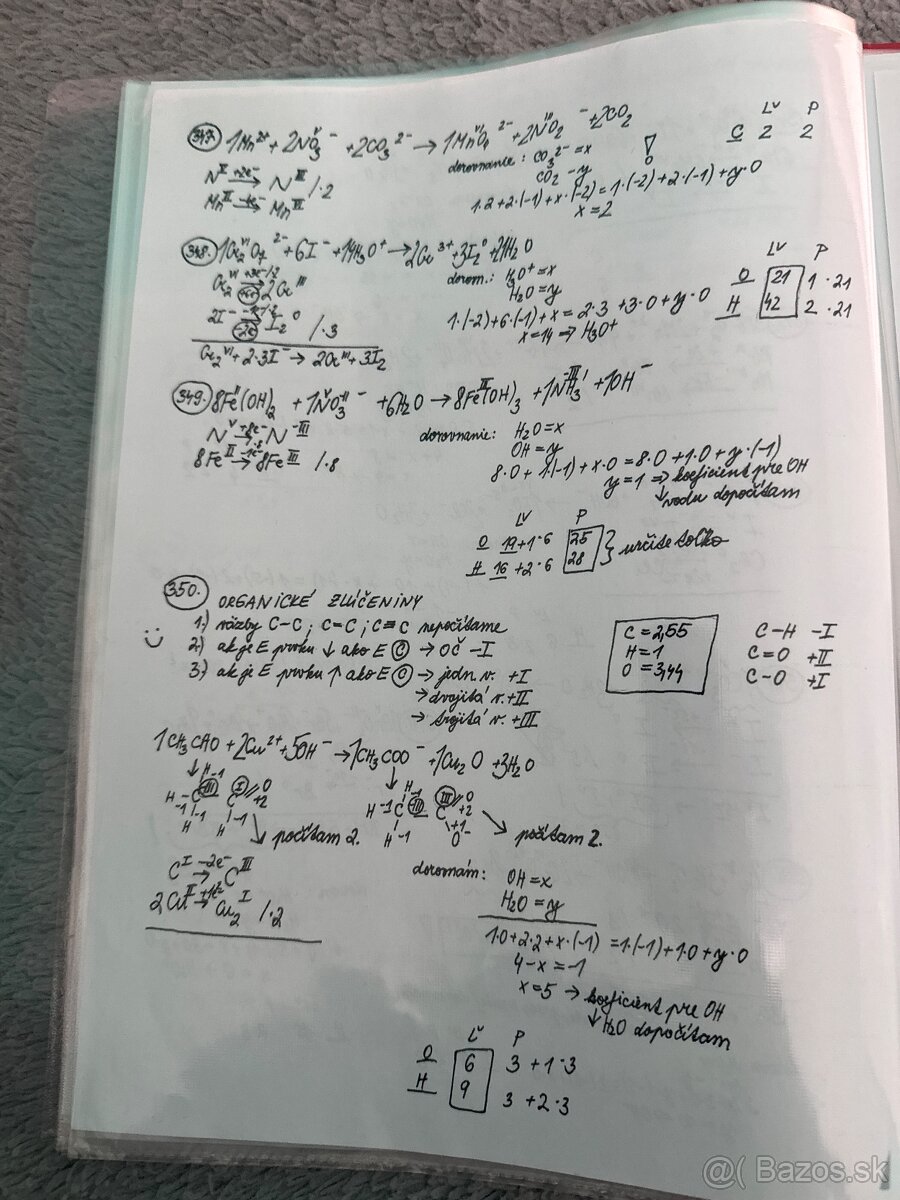 347. 1Mn²⁺ + 2NᵛO₃⁻ + 2CO₃²⁻ → 1MnⱽᴵO₄²⁻ + 2NᴵᴵᴵO₂⁻ + 2CO₂
Ľv P
C 2 2
dorovnanie: CO₃²⁻ = x
CO₂ = y
1·2 + 2·(-1) + x·(-2) = 1·(-2) + 2·(-1) + y·0
x = 2
348. 1Cr₂ⱽᴵO₇²⁻ + 6I⁻ + 14H₃O⁺ → 2Cr³⁺ + 3I₂⁰ + 21H₂O
Ľv P
O 21 1·21
H 42 2·21
dorovn.: H₃O⁺ = x
H₂O = y
1·(-2) + 6·(-1) + x = 2·3 + 3·0 + y·0
x = 14 → H₃O⁺
/·3
Cr₂ⱽᴵ + 2·3I⁻ → 2Crᴵᴵᴵ + 3I₂
349. 8Feᴵᴵ(OH)₂ + 1NⱽO₃⁻ + 6H₂O → 8Feᴵᴵᴵ(OH)₃ + 1N⁻ᴵᴵᴵH₃ + 1OH⁻
Nⱽ +8e⁻ → N⁻ᴵᴵᴵ
8Feᴵᴵ → 8Feᴵᴵᴵ /·8
dorovnanie: H₂O = x
OH = y
8·0 + 1·(-1) + x·0 = 8·0 + 1·0 + y·(-1)
y = 1 → koeficient pre OH
↓ vodu dopočítam
Ľv P
O 19+1·6 25
H 16+2·6 28
} určite toľko
350. ORGANICKÉ ZLÚČENINY
1.) väzby C-C; C=C; C≡C nepočítame
2) ak je E prvku ↓ ako E C → OČ -I
3) ak je E prvku ↑ ako E C → jedn. v. +I
→ dvojitá v. +II
→ trojitá v. +III
C = 2,55
H = 1
O = 3,44
C-H -I
C=O +II
C-O +I
1CH₃CHO + 2Cu²⁺ + 5OH⁻ → 1CH₃COO⁻ + 1Cu₂O + 3H₂O
→ počítam 2.
→ počítam 2.
Cᴵ -2e⁻ → Cᴵᴵᴵ
2Cuᴵᴵ +1e⁻ → Cu₂ᴵ /·2
dorovnám: OH = x
H₂O = y
1·0 + 2·2 + x·(-1) = 1·(-1) + 1·0 + y·0
4 - x = -1
x = 5 → koeficient pre OH
↓ H₂O dopočítam
Ľv P
O 6 3 + 1·3
H 9 3 + 2·3
@( Bazos.sk